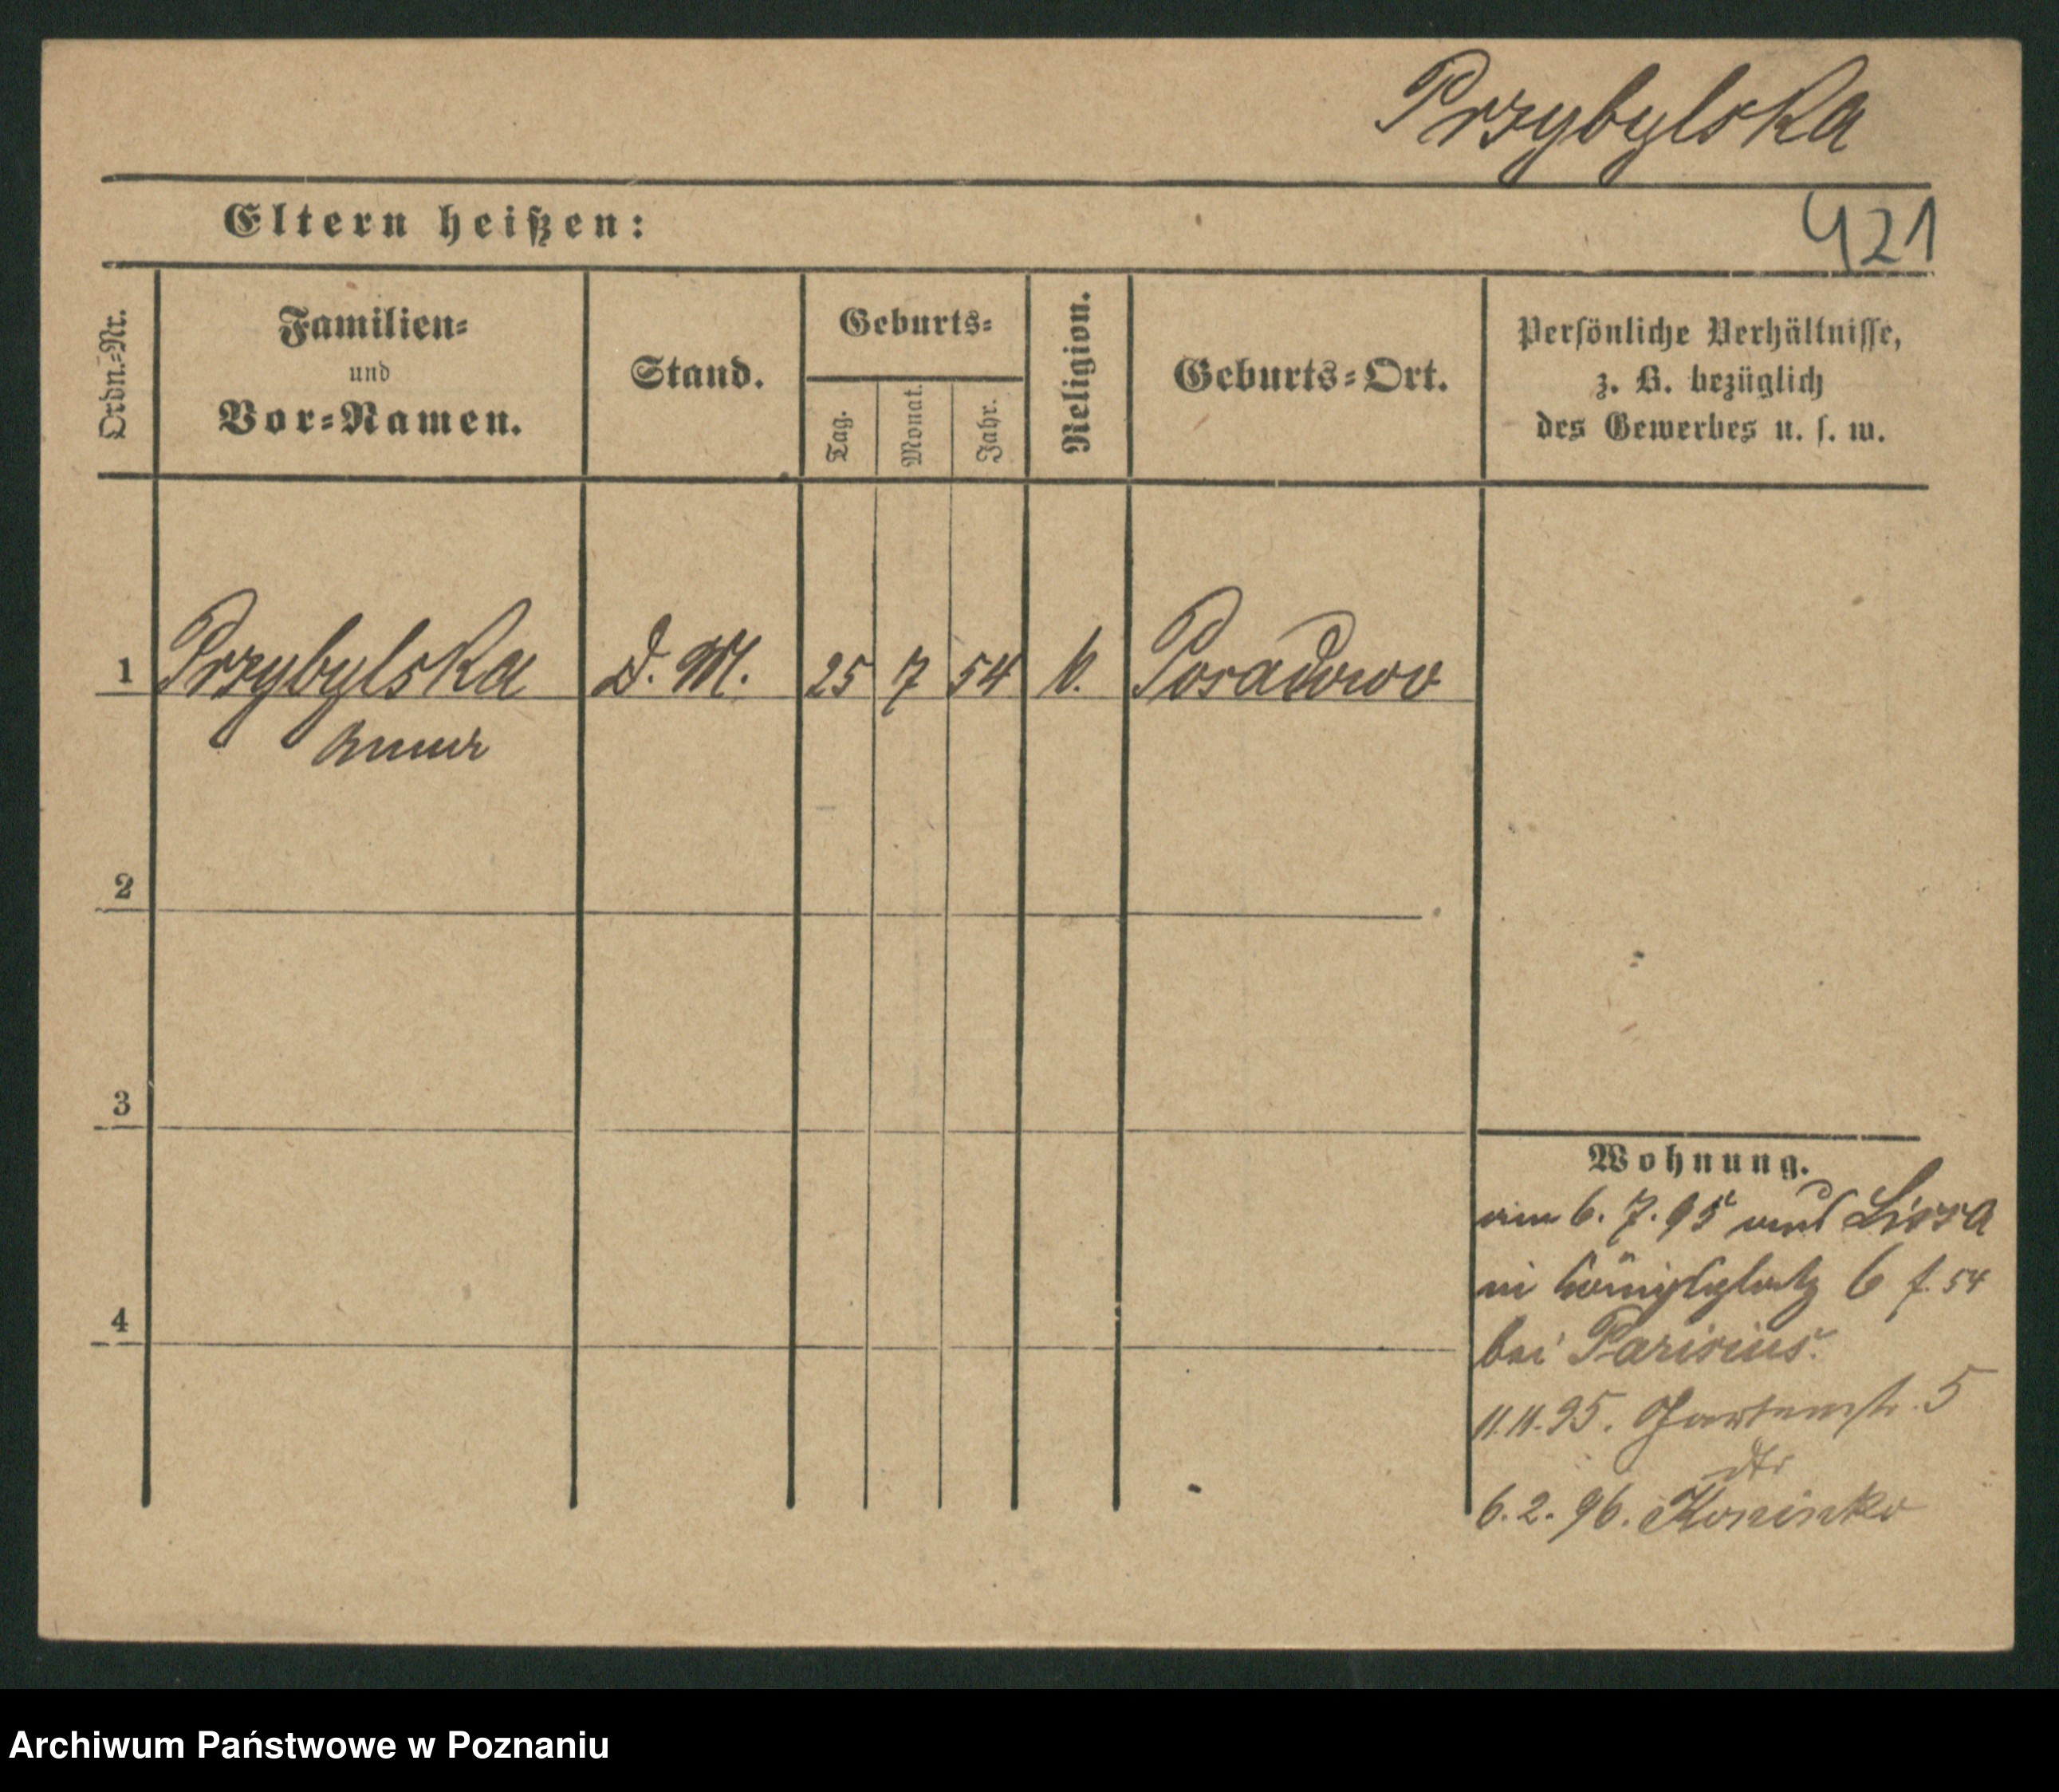 Przybylska
Eltern heißen:
421
Ordn.=Nr.
Familien=
und
Vor=Namen.
Stand.
Geburts=
Tag.
Monat.
Jahr.
Religion.
Geburts=Ort.
Persönliche Verhältnisse,
z. B. bezüglich
des Gewerbes u. s. w.
1 Przybylska D. M. 25 7 54 k. Posadowo
Anna
2
3
4
Wohnung.
am 6. 7. 95 aus Lissa
Königsplatz 6 f. 54
bei Parisius.
11.11.95. Gartenstr. 5
6. 2. 96. Koninko
Archiwum Państwowe w Poznaniu